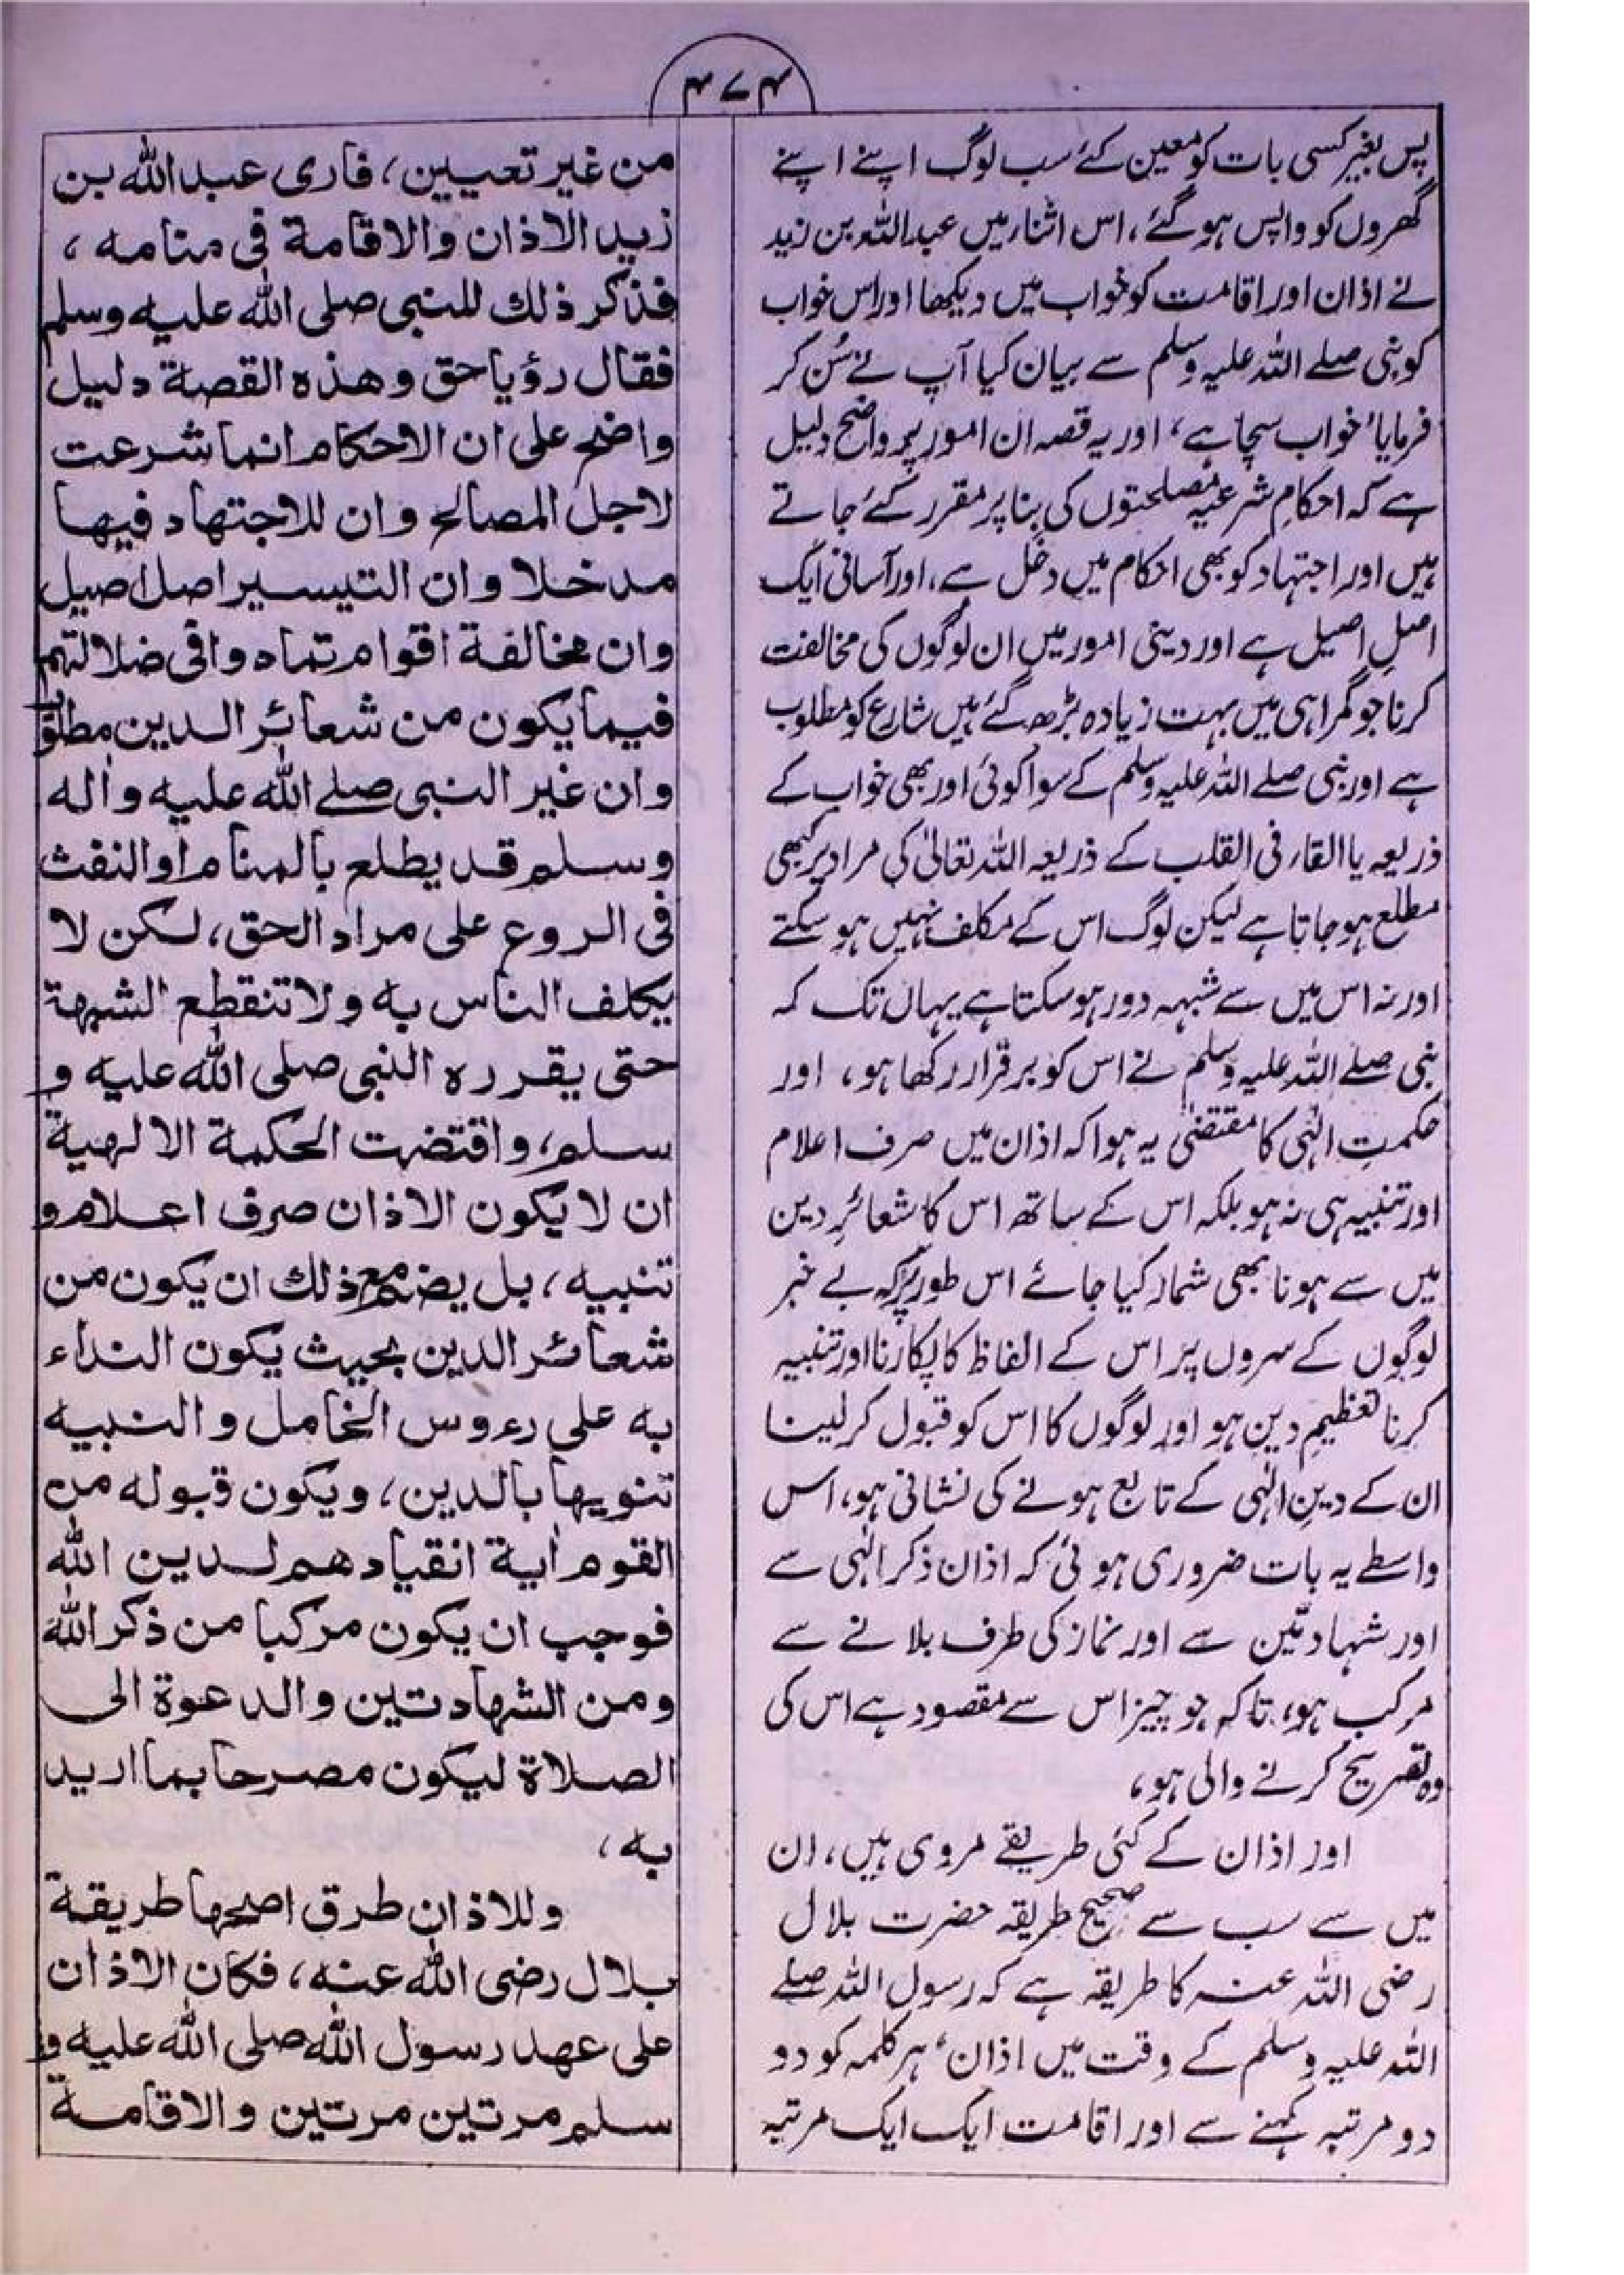 ۴۷۴
پس بغیر کسی بات کو معین کئے سب لوگ اپنے اپنے
گھروں کو واپس ہوگئے، اس اثنار میں عبداللہ بن زید
نے اذان اور اقامت کو خواب میں دیکھا اور اس خواب
کو نبی صلے اللہ علیہ وسلم سے بیان کیا آپ نے سُن کر
فرمایا 'خواب سچا ہے، اور یہ قصہ ان امور پر واضح دلیل
ہے کہ احکام شرعیہ مصلحتوں کی بنا پر مقرر کئے جاتے
ہیں اور اجتہاد کو بھی احکام میں دخل ہے، اور آسانی ایک
اصلِ اصیل ہے اور دینی امور میں ان لوگوں کی مخالفت
کرنا جو گمراہی میں بہت زیادہ بڑھ گئے ہیں شارع کو مطلوب
ہے اور نبی صلے اللہ علیہ وسلم کے سوا کوئی اور بھی خواب کے
ذریعہ یا القار فی القلب کے ذریعہ اللہ تعالیٰ کی مراد پر کبھی
مطلع ہو جاتا ہے لیکن لوگ اس کے مکلف نہیں ہو سکتے
اور نہ اس میں سے شبہہ دور ہو سکتا ہے یہاں تک کہ
نبی صلے اللہ علیہ وسلم نے اس کو برقرار رکھا ہو، اور
حکمتِ الٰہی کا مقتضیٰ یہ ہوا کہ اذان میں صرف اعلام
اور تنبیہ ہی نہ ہو بلکہ اس کے ساتھ اس کا شعائرِ دین
میں سے ہونا بھی شمار کیا جائے اس طور پر کہ بے خبر
لوگوں کے سروں پر اس کے الفاظ کا پکارنا اور تنبیہ
کرنا تعظیمِ دین ہو اور لوگوں کا اس کو قبول کر لینا
ان کے دینِ الٰہی کے تابع ہونے کی نشانی ہو، اس
واسطے یہ بات ضروری ہوئی کہ اذان ذکر الٰہی سے
اور شہادتین سے اور نماز کی طرف بلانے سے
مرکب ہو، تاکہ جو چیز اس سے مقصود ہے اس کی
وہ تصریح کرنے والی ہو،
اور اذان کے کئی طریقے مروی ہیں، ان
میں سے سب سے صحیح طریقہ حضرت بلال
رضی اللہ عنہ کا طریقہ ہے کہ رسول اللہ صلے
اللہ علیہ وسلم کے وقت میں اذان ' ہر کلمہ کو دو
دو مرتبہ کہنے سے اور اقامت ایک ایک مرتبہ
من غير تعيين، فارى عبد الله بن
زيد الاذان والاقامة فى منامه،
فذكر ذلك للنبى صلى الله عليه وسلم
فقال رؤيا حق وهذه القصة دليل
واضح على ان الاحكام انما شرعت
لاجل المصالح وان للاجتهاد فيها
مدخلا وان التيسير اصل اصيل
وان مخالفة اقوام تمادوا فى ضلالتهم
فيما يكون من شعائر الدين مطلوب
وان غير النبى صلے الله عليه واٰله
وسلم قد يطلع بالمنام او النفث
فى الروع على مراد الحق، لكن لا
يكلف الناس به ولا تنقطع الشبهة
حتى يقرره النبى صلى الله عليه و
سلم، واقتضت الحكمة الالهية
ان لا يكون الاذان صرف اعلام و
تنبيه، بل يضم مع ذلك ان يكون من
شعائر الدين بحيث يكون النداء
به على رءوس الخامل والنبيه
تنويها بالدين، ويكون قبوله من
القوم اٰية انقيادهم لدين الله
فوجب ان يكون مركبا من ذكر الله
ومن الشهادتين والدعوة الى
الصلاة ليكون مصرحا بما اريد
به،
وللاذان طرق اصحها طريقة
بلال رضى الله عنه، فكان الاذان
على عهد رسول الله صلى الله عليه و
سلم مرتين مرتين والاقامة